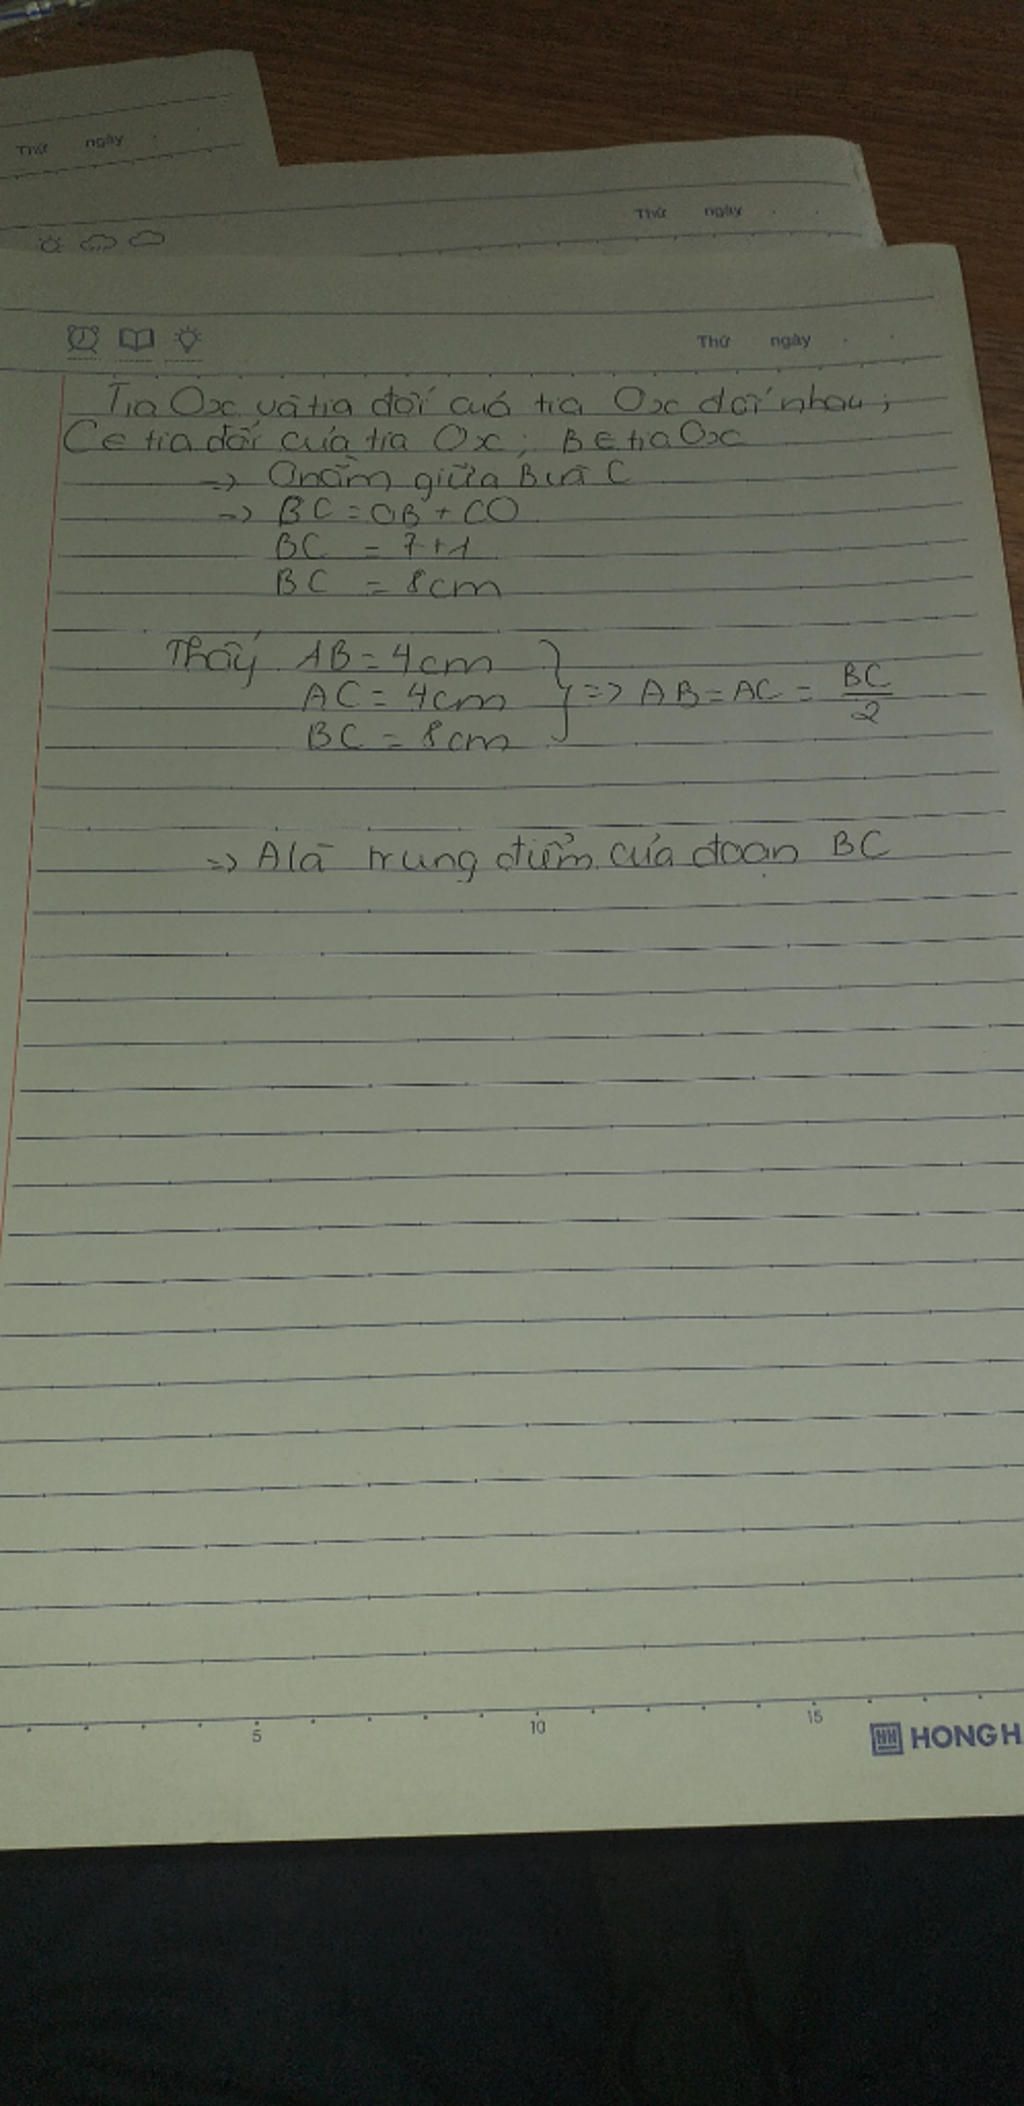 Thứ ngày
Thứ ngày
Thứ ngày
Tia Ox và tia đối của tia Ox đối nhau;
C ∈ tia đối của tia Ox; B ∈ tia Ox
=> O nằm giữa B và C
=> BC = OB + CO
BC = 7 + 1
BC = 8cm
Thấy AB = 4cm
AC = 4cm
BC = 8cm
} => AB = AC = BC/2
=> A là trung điểm của đoạn BC
5 10 15
HONG H